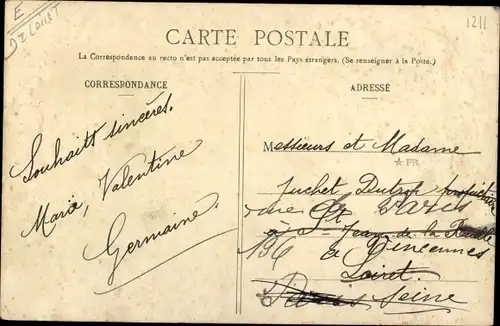 E
1211
CARTE POSTALE
La Correspondance au recto n'est pas acceptée par tous les Pays étrangers. (Se renseigner à la Poste.)
CORRESPONDANCE
Souhaits sincères.
Marie, Valentine
Germaine.
ADRESSE
Messieurs et Madame
★ FR.
Juchet Dutrop
rue de Paris
à St Jean de la
136 à Vincennes
Loiret.
Paris Seine